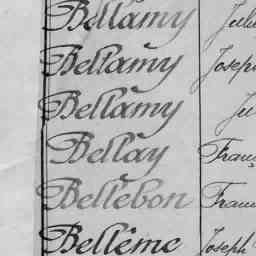 Bellamy Jule
Bellamy Joseph
Bellamy Ju
Bellay Franç
Bellebon Franç
Bellême Joseph